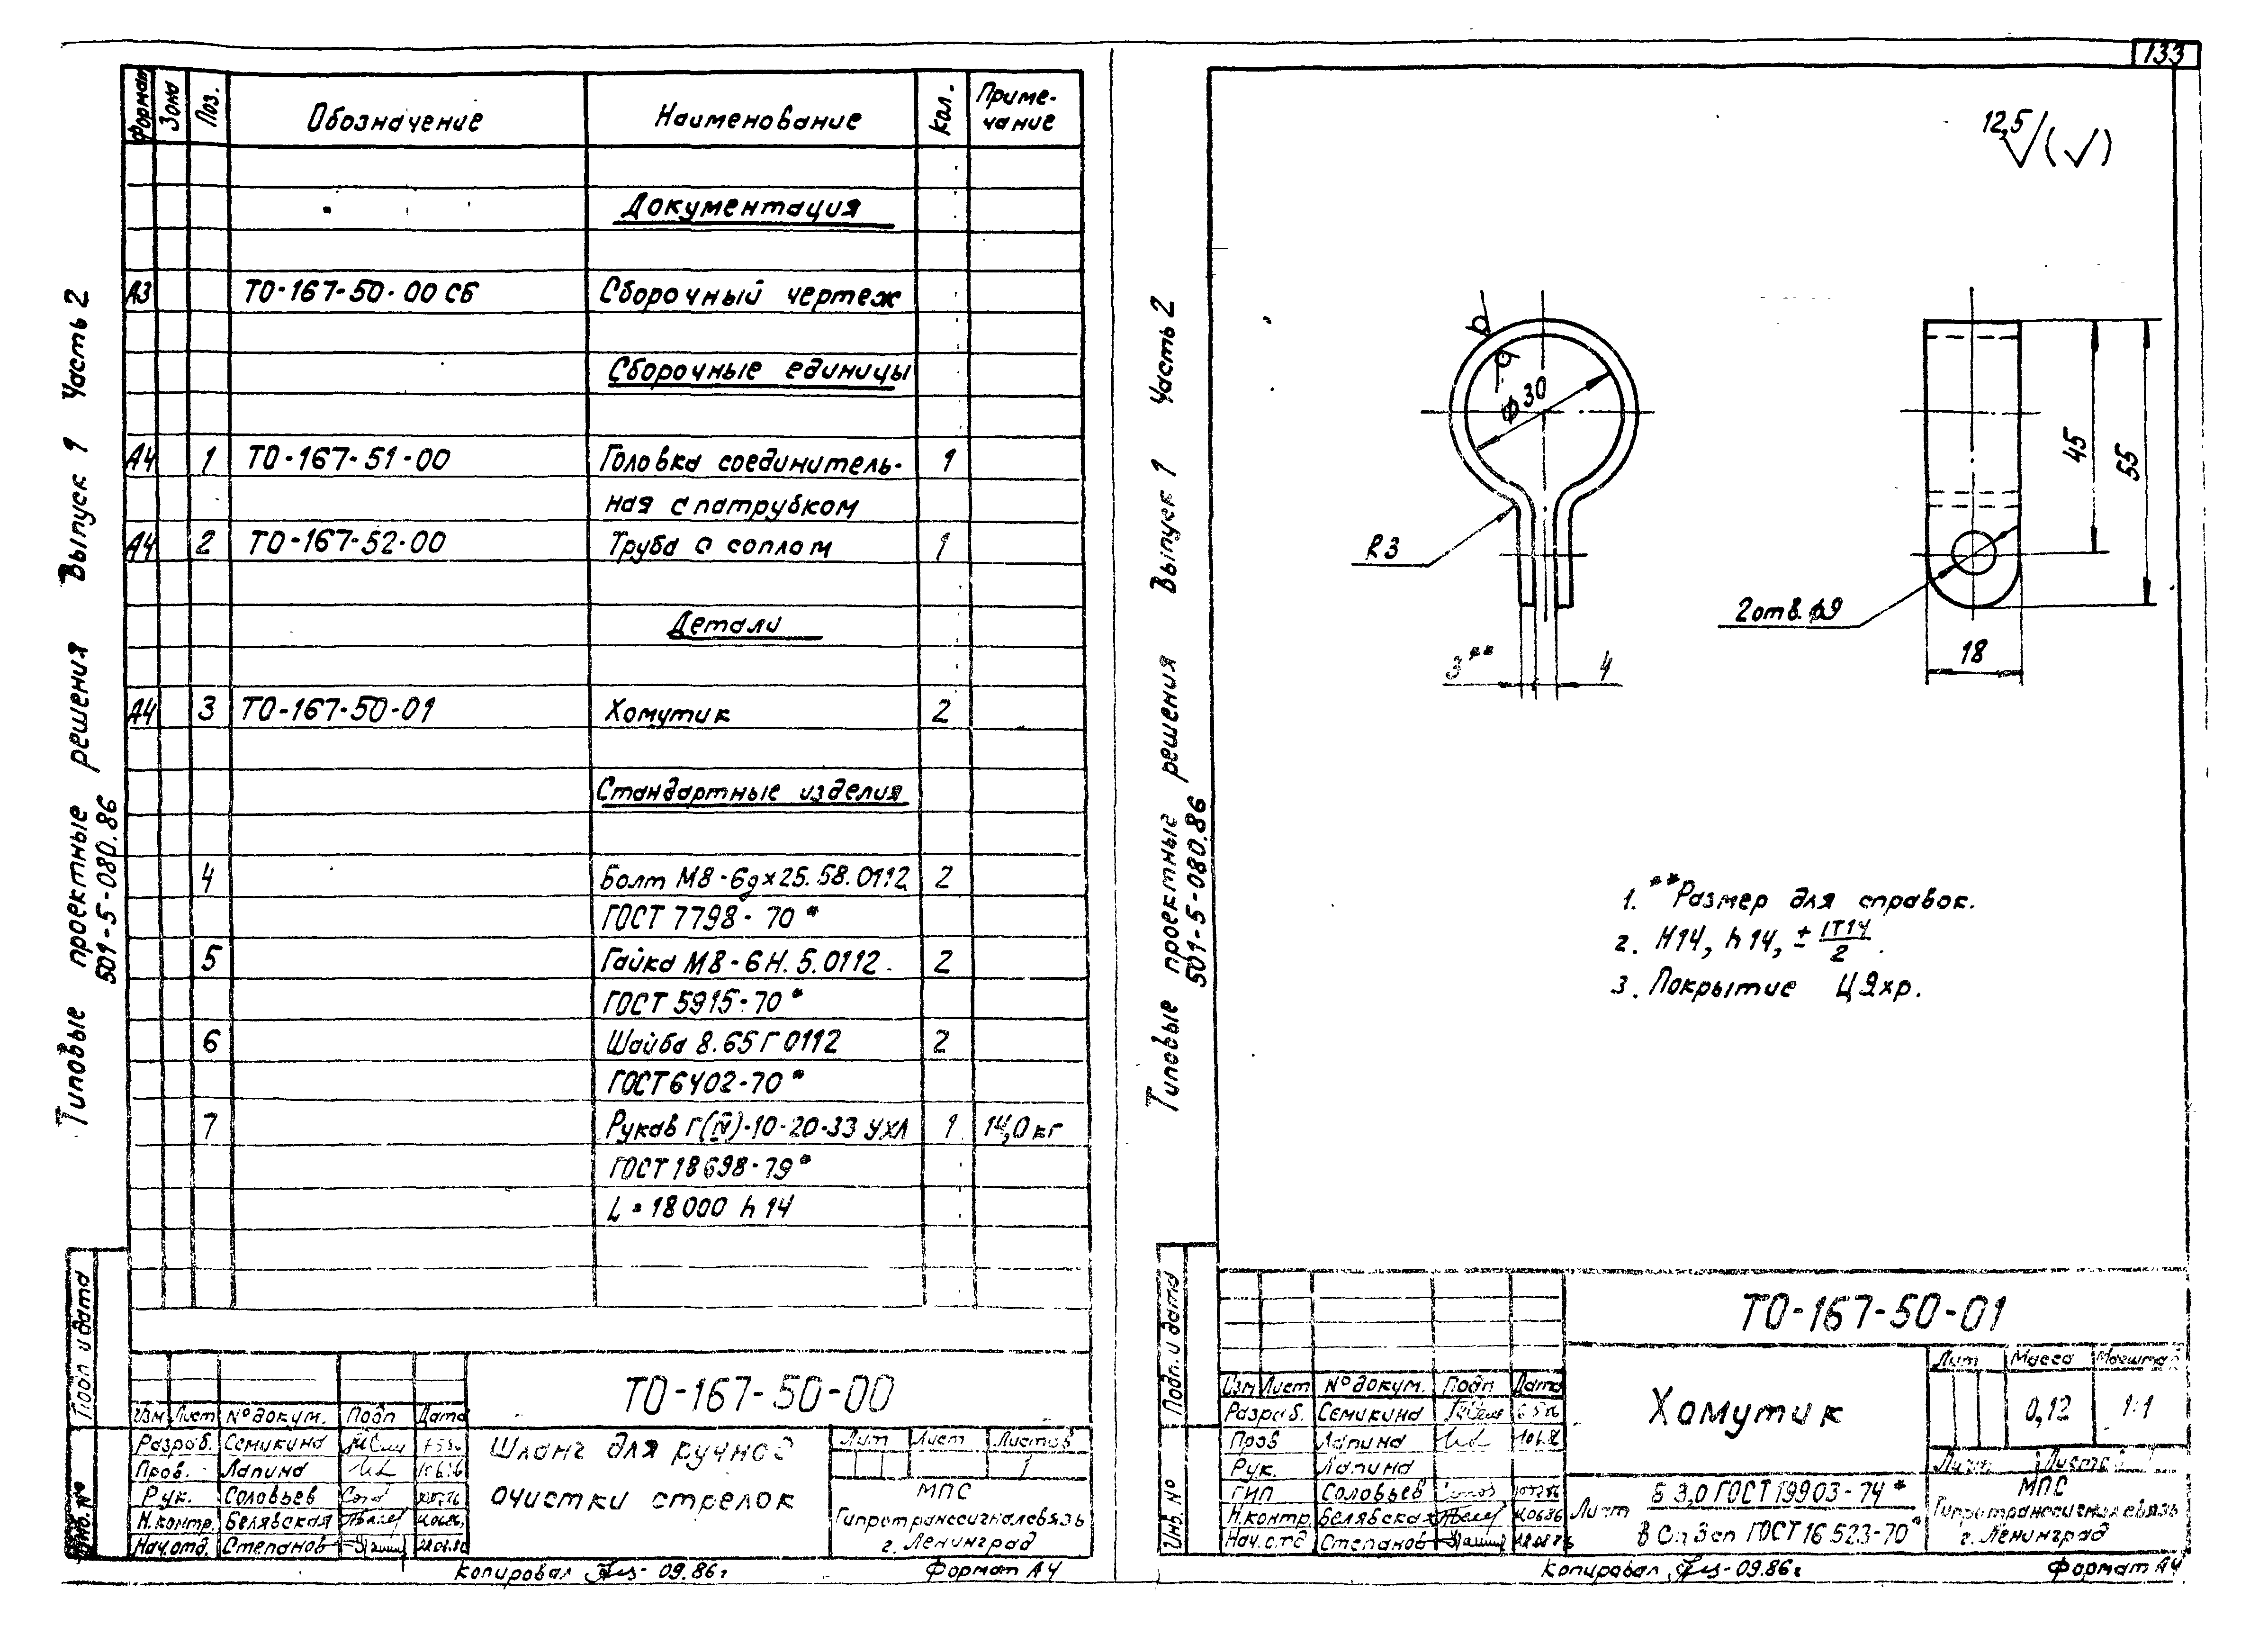 133
Формат Зона Поз. Обозначение Наименование Кол. Приме-
чание
Документация
А3 ТО-167-50-00 СБ Сборочный чертеж
Сборочные единицы
А4 1 ТО-167-51-00 Головка соединитель- 1
ная с патрубком
А4 2 ТО-167-52-00 Труба с соплом 1
Детали
А4 3 ТО-167-50-01 Хомутик 2
Стандартные изделия
4 Болт М8-6gх25.58.0112 2
ГОСТ 7798-70*
5 Гайка М8-6Н.5.0112 2
ГОСТ 5915-70*
6 Шайба 8.65Г 0112 2
ГОСТ 6402-70*
7 Рукав Г(IV)-10-20-33 УХЛ 1 14,0 кг
ГОСТ 18698-79*
L = 18000 h14
Типовые проектные решения Выпуск 1 Часть 2
501-5-080.86
Подп. и дата
Инв. №
ТО-167-50-00
Изм Лист № докум. Подп Дата
Разраб. Семикина
Пров. Лапина
Рук. Соловьев
Н.контр. Белявская
Нач.отд. Степанов
Шланг для ручной
очистки стрелок
Лит Лист Листов
1
МПС
Гипротранссигналсвязь
г. Ленинград
Копировал 09.86г Формат А4
Типовые проектные решения Выпуск 1 Часть 2
501-5-080.86
12,5 (√)
ф30
R3
3**
4
45
55
2 отв. ф9
18
1. **Размер для справок.
2. Н14, h14, ± IT14/2.
3. Покрытие Ц9хр.
Подп. и дата
Инв. №
ТО-167-50-01
Изм Лист № докум. Подп Дата
Разраб. Семикина
Пров Лапина
Рук. Лапина
ГИП Соловьев
Н.контр. Белявская
Нач.отд Степанов
Хомутик
Лит Масса Масштаб
0,12 1:1
Лист Листов 1
Лист Б 3,0 ГОСТ 19903-74*
В Ст3сп ГОСТ 16523-70*
МПС
Гипротранссигналсвязь
г. Ленинград
Копировал 09.86г Формат А4